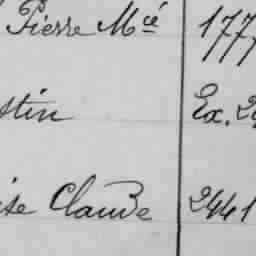 Pierre Mcé 177
stin Ex. 2
ise Claude 2441